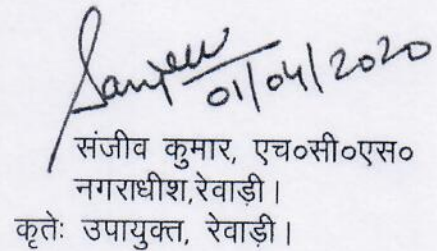 Sanjeev
01/04/2020
संजीव कुमार, एच०सी०एस०
नगराधीश,रेवाड़ी।
कृतेः उपायुक्त, रेवाड़ी।